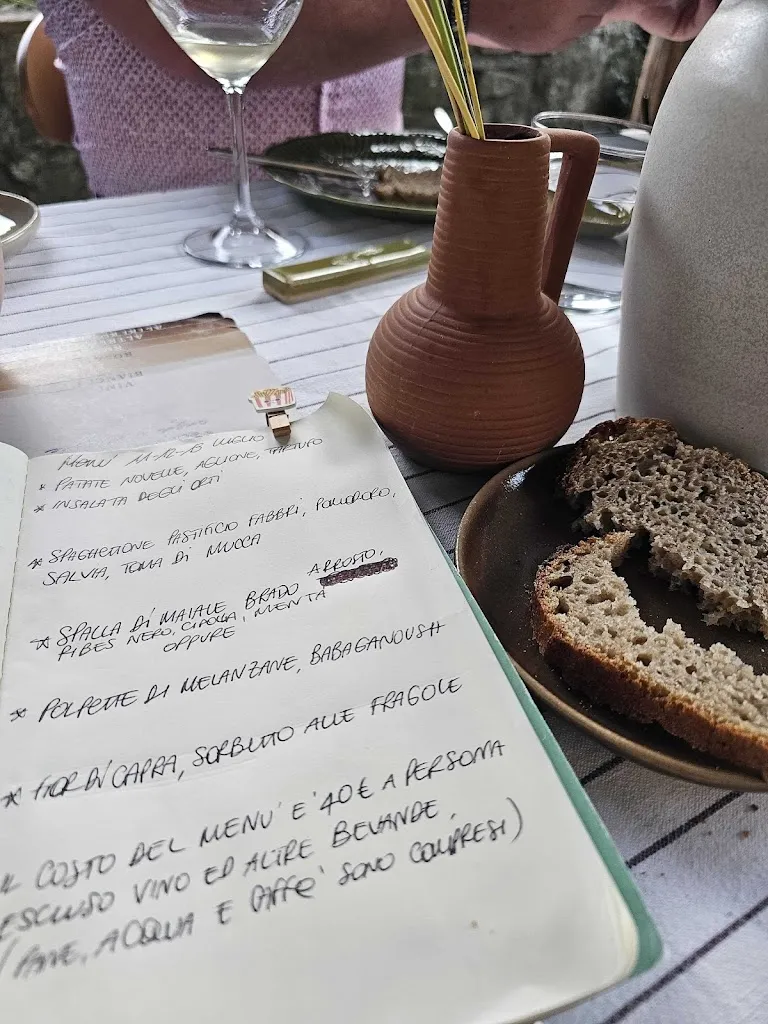 MENÙ 11-12-13 LUGLIO
* PATATE NOVELLE, AGLIONE, TARTUFO
* INSALATA DEGLI ORTI
* SPAGHETTONE PASTIFICIO FABBRI, POMODORO,
SALVIA, TOMA DI MUCCA
* SPALLA DI MAIALE BRADO ARROSTO,
RIBES NERO, CIPOLLA, MENTA
OPPURE
* POLPETTE DI MELANZANE, BABAGANOUSH
* FIOR DI CAPRA, SORBETTO ALLE FRAGOLE
IL COSTO DEL MENU' E' 40€ A PERSONA
ESCLUSO VINO ED ALTRE BEVANDE.
(PANE, ACQUA E CAFFE' SONO COMPRESI)